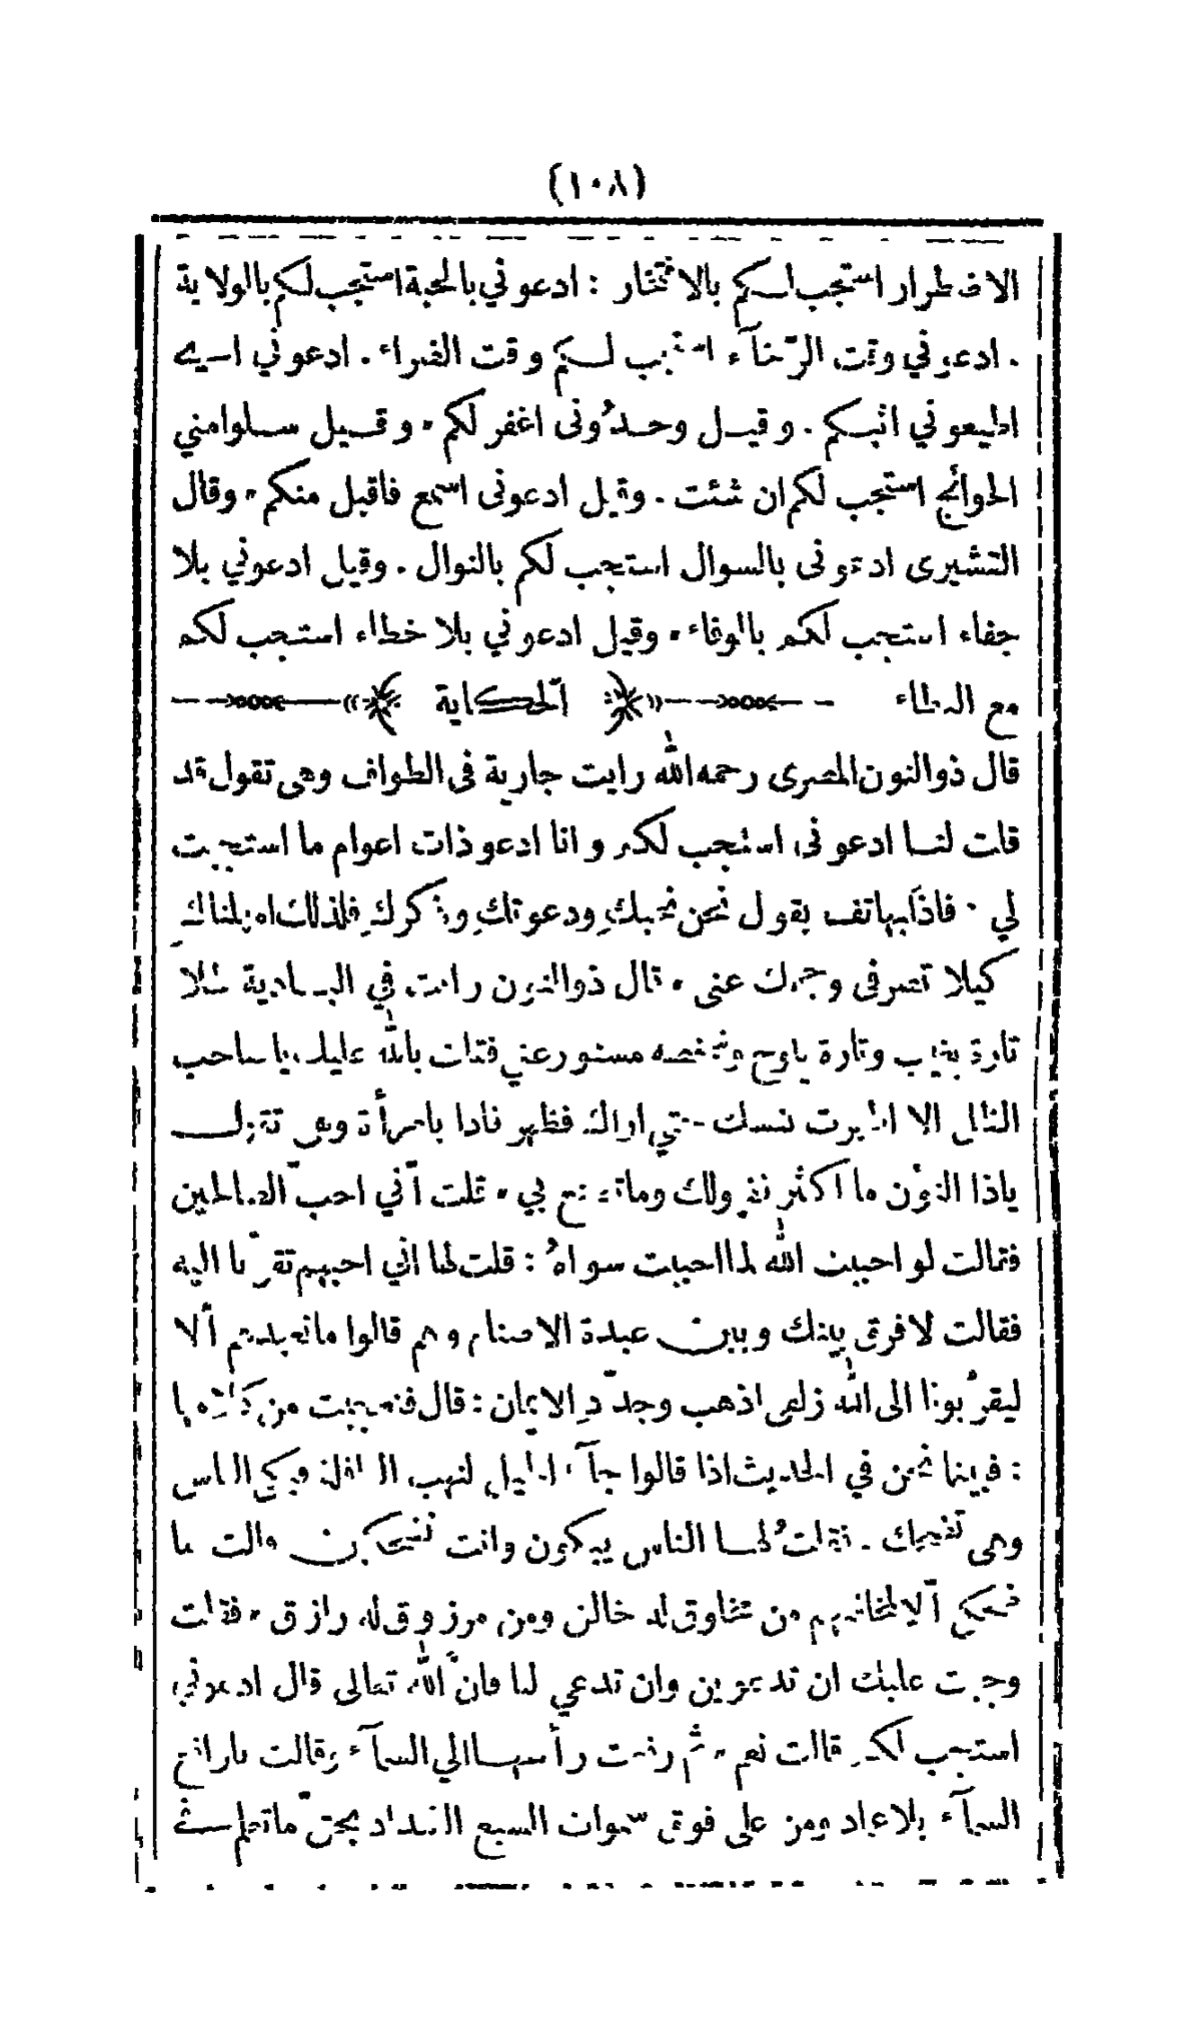 (١٠٨)
الاضطرار استجب لكم بالافتخار : ادعوني بالمحبة استجب لكم بالولاية
. ادعوني وقت الرّخآء استجب لكم وقت الضراء . ادعوني اسے
اطيعوني اثبكم . وقيل وحدُونى اغفر لكم . وقيل سلوامني
الحوائج استجب لكم ان شئت . وقيل ادعونى اسمع فاقبل منكم . وقال
القشيرى ادعونى بالسوال استجب لكم بالنوال . وقيل ادعوني بلا
جفاء استجب لكم بالوفاء . وقيل ادعوني بلا خطاء استجب لكم
مع العطاء الحكاية
قال ذوالنون المصرى رحمه الله رايت جارية فى الطواف وهى تقول قد
قلت لنا ادعونى استجب لكم وانا ادعو ذات اعوام ما استجبت
لي . فاذا بهاتف يقول نحن نحبكِ ودعوتكِ وذكركِ فلذلك امهلناكِ
كيلا تصرفى وجهك عنى . قال ذوالنون رايت في البادية ظلا
تارة يغيب وتارة يلوح وشخصه مستور عني فقلت بالله عليك يا صاحب
الظل الا اظهرت نفسك حتي اراك فظهر فاذا بامرأة وهى تقول
ياذا النون ما اكثر فضولك وما تصنع بي . قلت اني احبّ الصالحين
فقالت لو احببت الله لما احببت سواهُ : قلت لها اني احبهم تقرّبا اليه
فقالت لا فرق بينك وبين عبدة الاصنام وهم قالوا ما نعبدهم الا
ليقرّبونا الى الله زلفى اذهب وجدّد الايمان : قال فتعجبت من كلامها
: فبينما نحن في الحديث اذا قالوا جآء الخيل لنهب القافلة وبكى الناس
وهى تضحك . فقلتُ لها الناس يبكون وانت تضحكين قالت ما
ضحكي الا لمخافتهم من مخلوق له خالق ومن مرزوق له رازق . فقلت
وجبت عليك ان تدعوين وان تدعي لنا فانّ الله تعالى قال ادعوني
استجب لكم قالت نعم . ثم رفعت رأسها الي السمآء وقالت يارافع
السمآء بلا عماد ومن على فوق سموات السبع الشداد بحقّ ما تعلم في